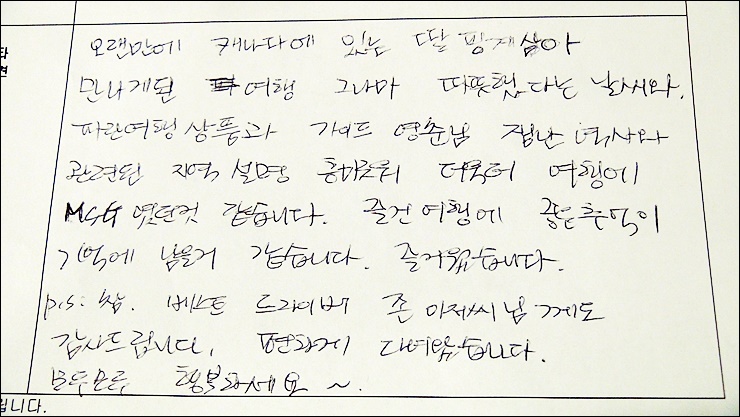 오랜만에 캐나다에 있는 딸 핑계삼아
만나게된 여행 그나마 따뜻했다는 날씨와,
파란여행 상품과 가이드 영춘님 잼난 역사와
관련된 지역 설명 흥미로워 더욱더 여행에
MSG 였던것 같습니다. 즐건 여행에 좋은 추억이
기억에 남을거 같습니다. 즐거웠습니다.
p.s: 참. 베스트 드라이버 존 아저씨님 께도
감사드립니다. 편하게 다녀왔습니다.
모두모두 행복하세요 ~.
됩니다.